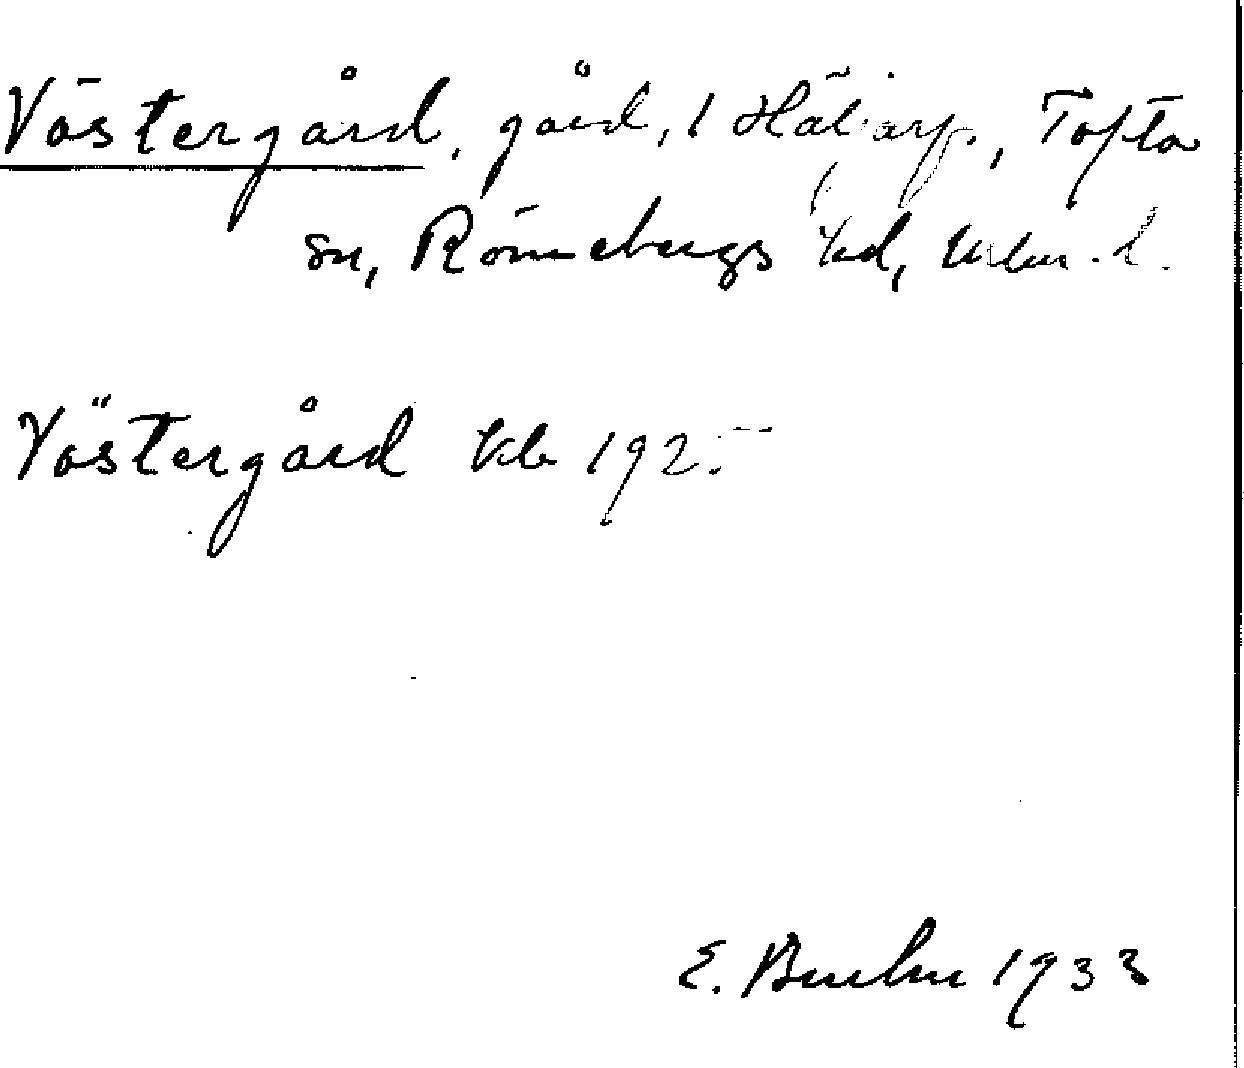 Västergård, gård, i Häljarp, Tofta
sn, Rönnebergs hd, Mlm. l.
Västergård Kb 1925
E. 1933